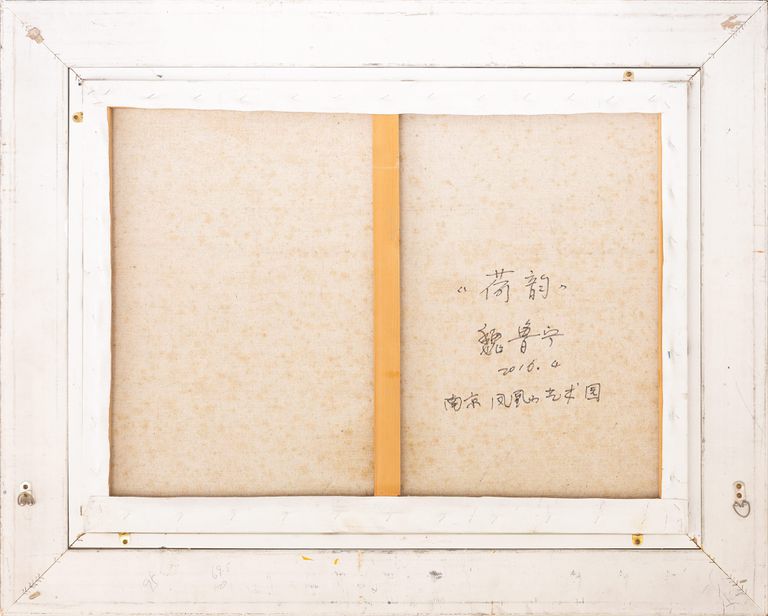 “荷韵”
魏鲁宁
2016.4
南京凤凰山艺术园